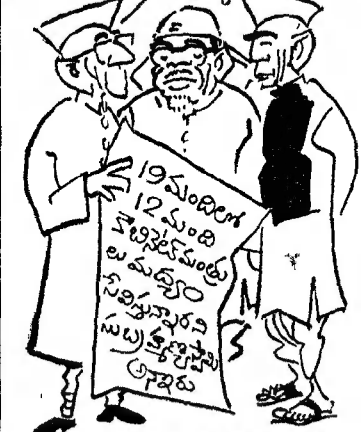 19 మందిలో
12 మంది
కాబినెట్ మంత్రు
లు మద్యం
సేవిస్తున్నారని
సుబ్రహ్మణ్యస్వామి
అన్నారు